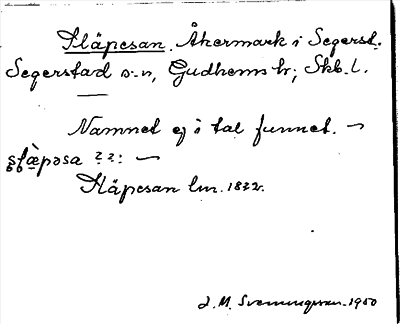 Släpesan. Åkermark i Segerst.
Segerstad s:n, Gudhems hr; Skb. l.
Namnet ej i tal funnet. ~
släpəsa ??: ~
Släpesan lm. 1832.
J. M. Svenningsson. 1950